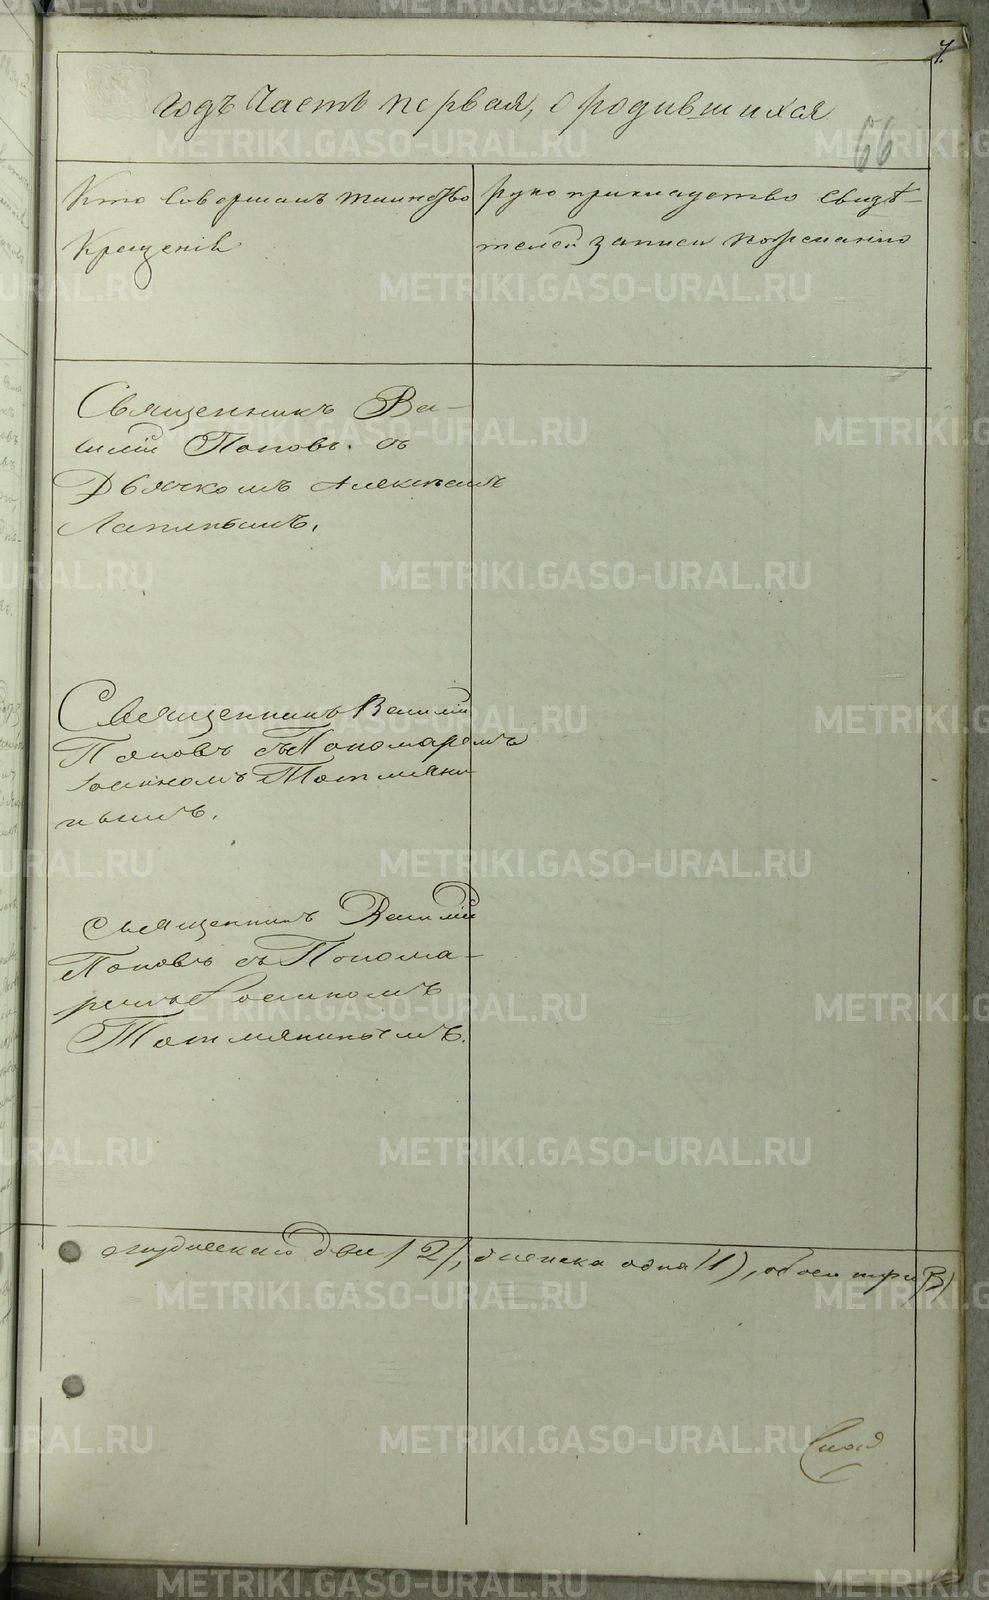 7.
годъ Часть первая, о родившихся
66
Кто Совершалъ таинство
Крещенія
Рукоприкладство свидѣ-
телей записи по желанію
Священникъ Ва-
силій Поповъ. съ
Дьячкомъ
Священникъ Василій
Поповъ съ Пономаремъ
Іоанномъ Тотмяни
нымъ.
Священникъ Василій
Поповъ съ Понома-
ремъ Іоанномъ
Тотмянинымъ.
мужескаго два /2/, женска одна (1), обоего три (3)
METRIKI.GASO-URAL.RU